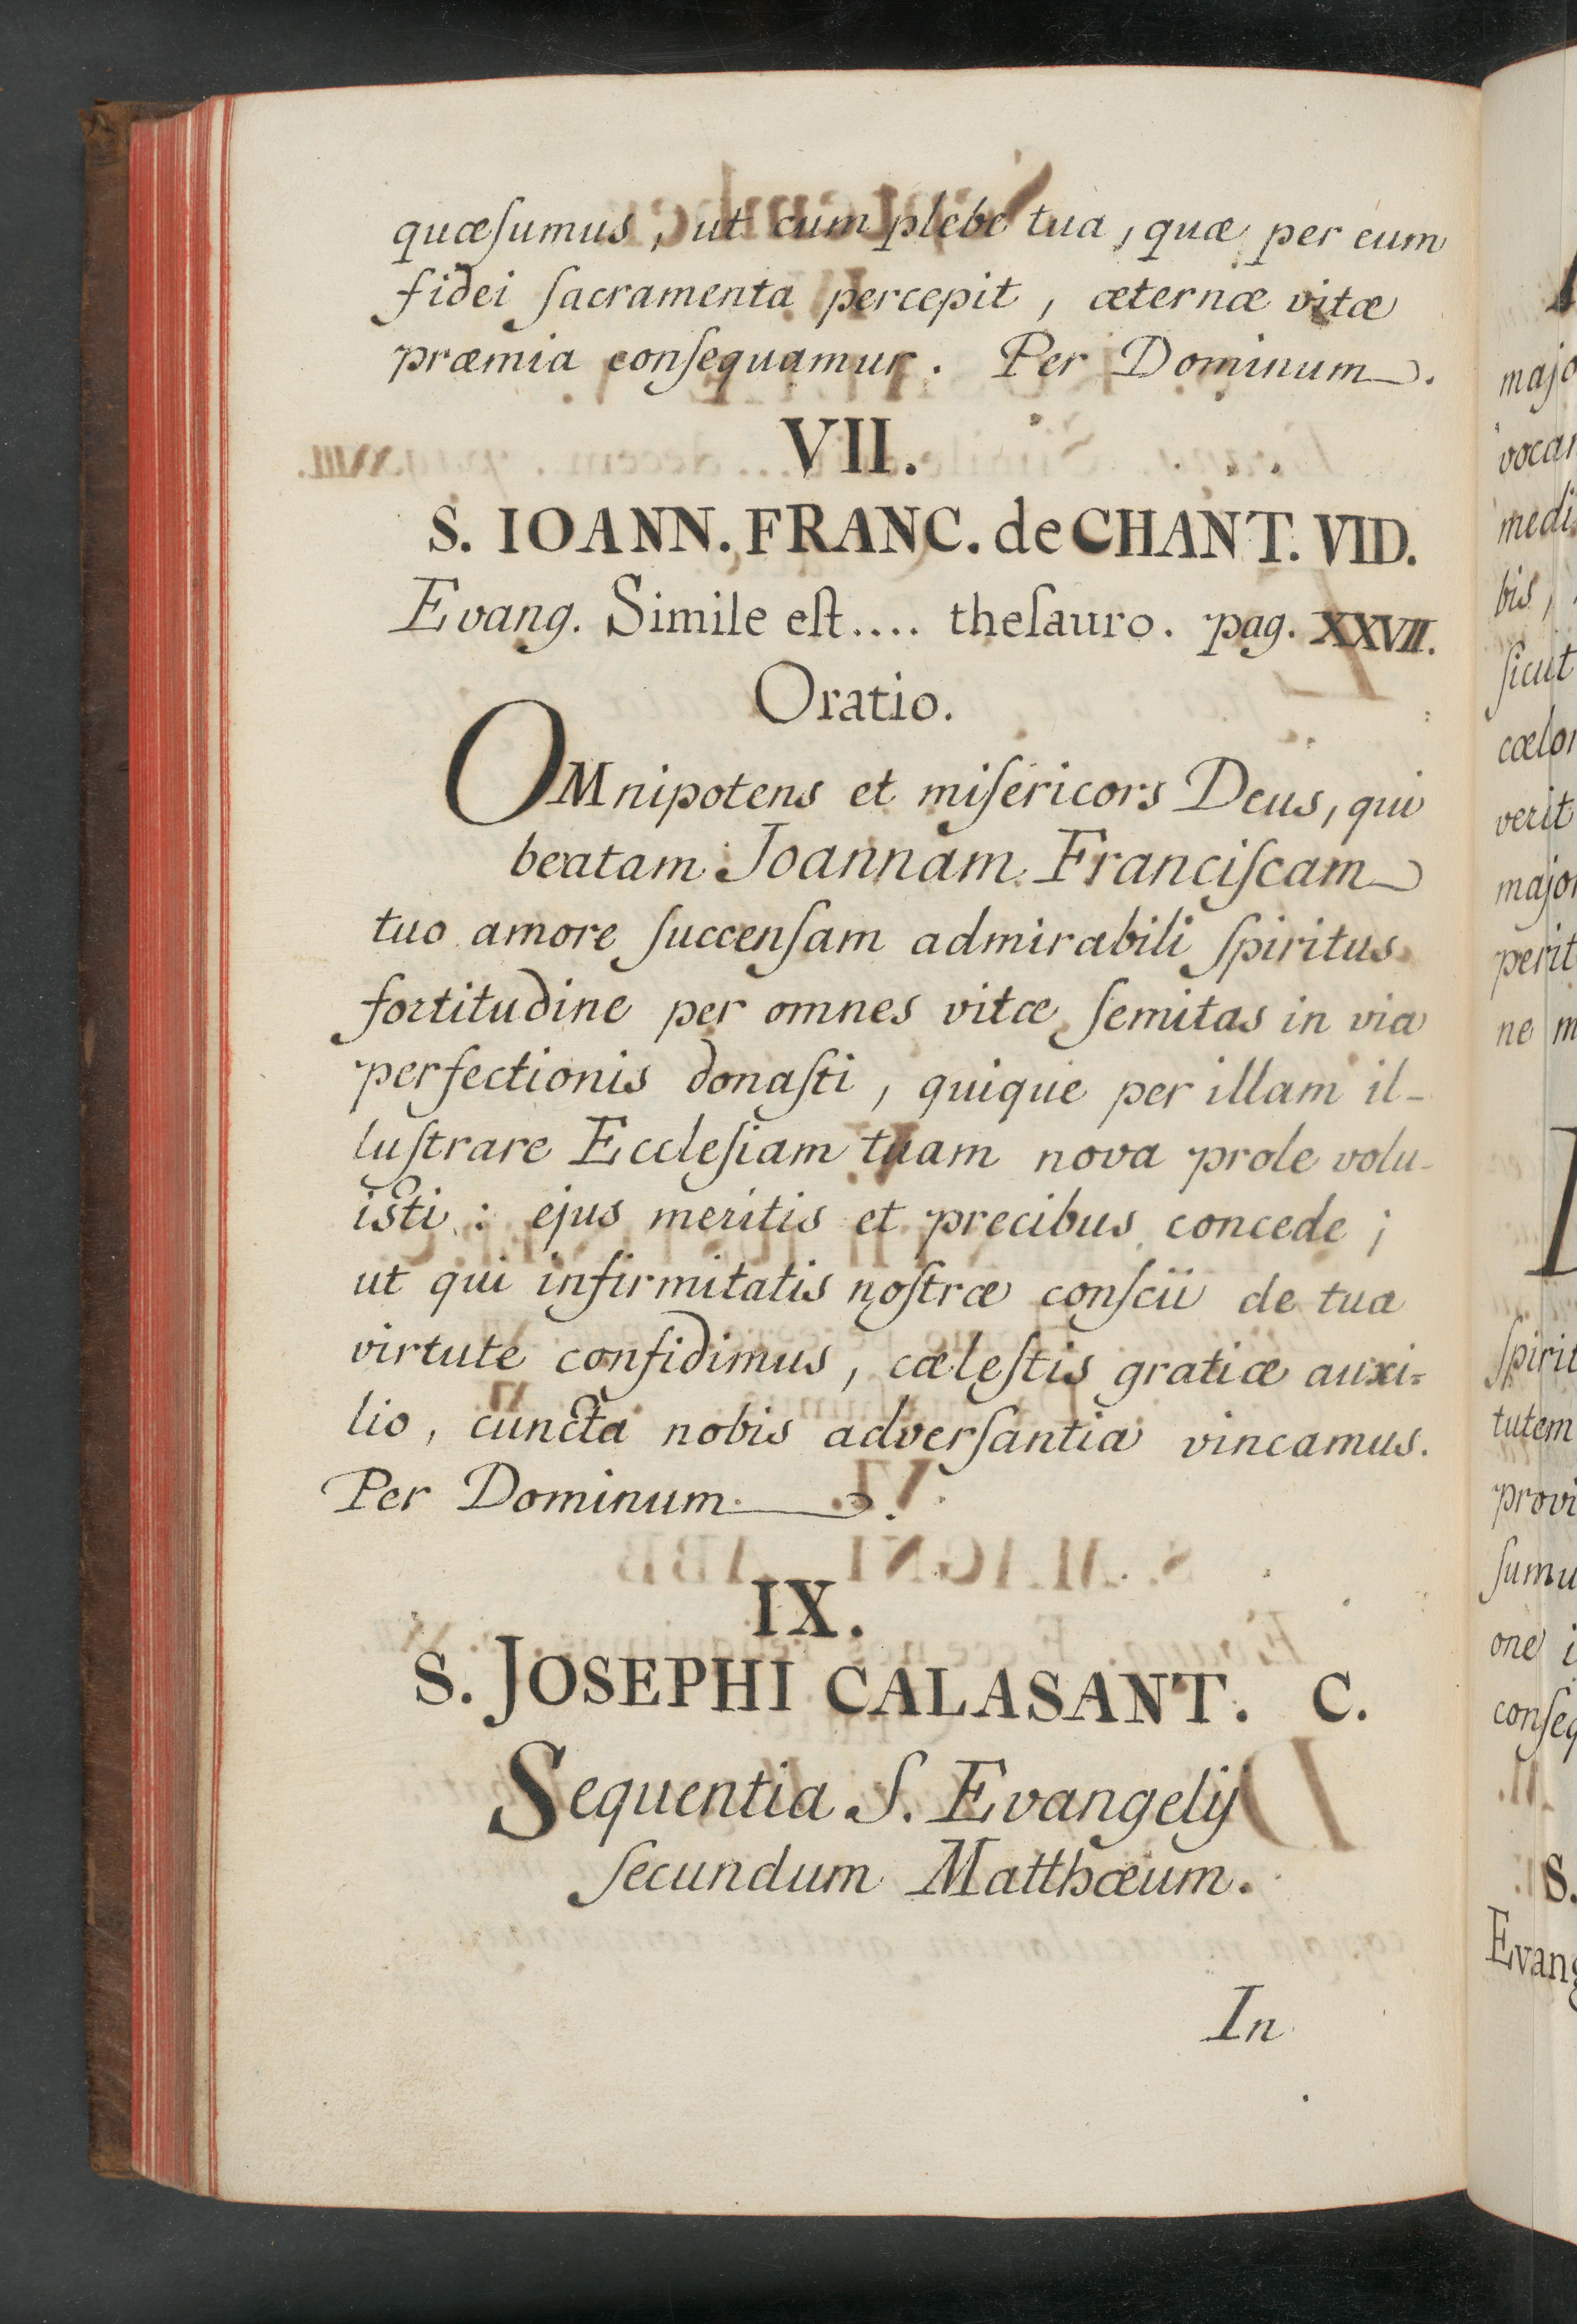 quæſumus, ut cum plebe tua, quæ per eum
fidei ſacramenta percepit, æternæ vitæ
præmia conſequamur. Per Dominum.
VII.
S. IOANN. FRANC. de CHANT. VID.
Evang. Simile eſt.... theſauro. pag. XXVII.
Oratio.
OMnipotens et miſericors Deus, qui
beatam Joannam Franciſcam
tuo amore ſuccenſam admirabili ſpiritus
fortitudine per omnes vitæ ſemitas in via
perfectionis donaſti, quique per illam il-
luſtrare Eccleſiam tuam nova prole volu-
isti: ejus meritis et precibus concede;
ut qui infirmitatis noſtræ conſcii de tua
virtute confidimus, cæleſtis gratiæ auxi=
lio, cuncta nobis adverſantia vincamus.
Per Dominum.
IX.
S. JOSEPHI CALASANT. C.
Sequentia S. Evangelij
ſecundum Matthæum.
In
majo
vocar
medi
bis,
ſicut
cælor
verit
major
perit
ne m
ſpirit
tutem
provi
ſumu
one i
conſeq
S.
Evang